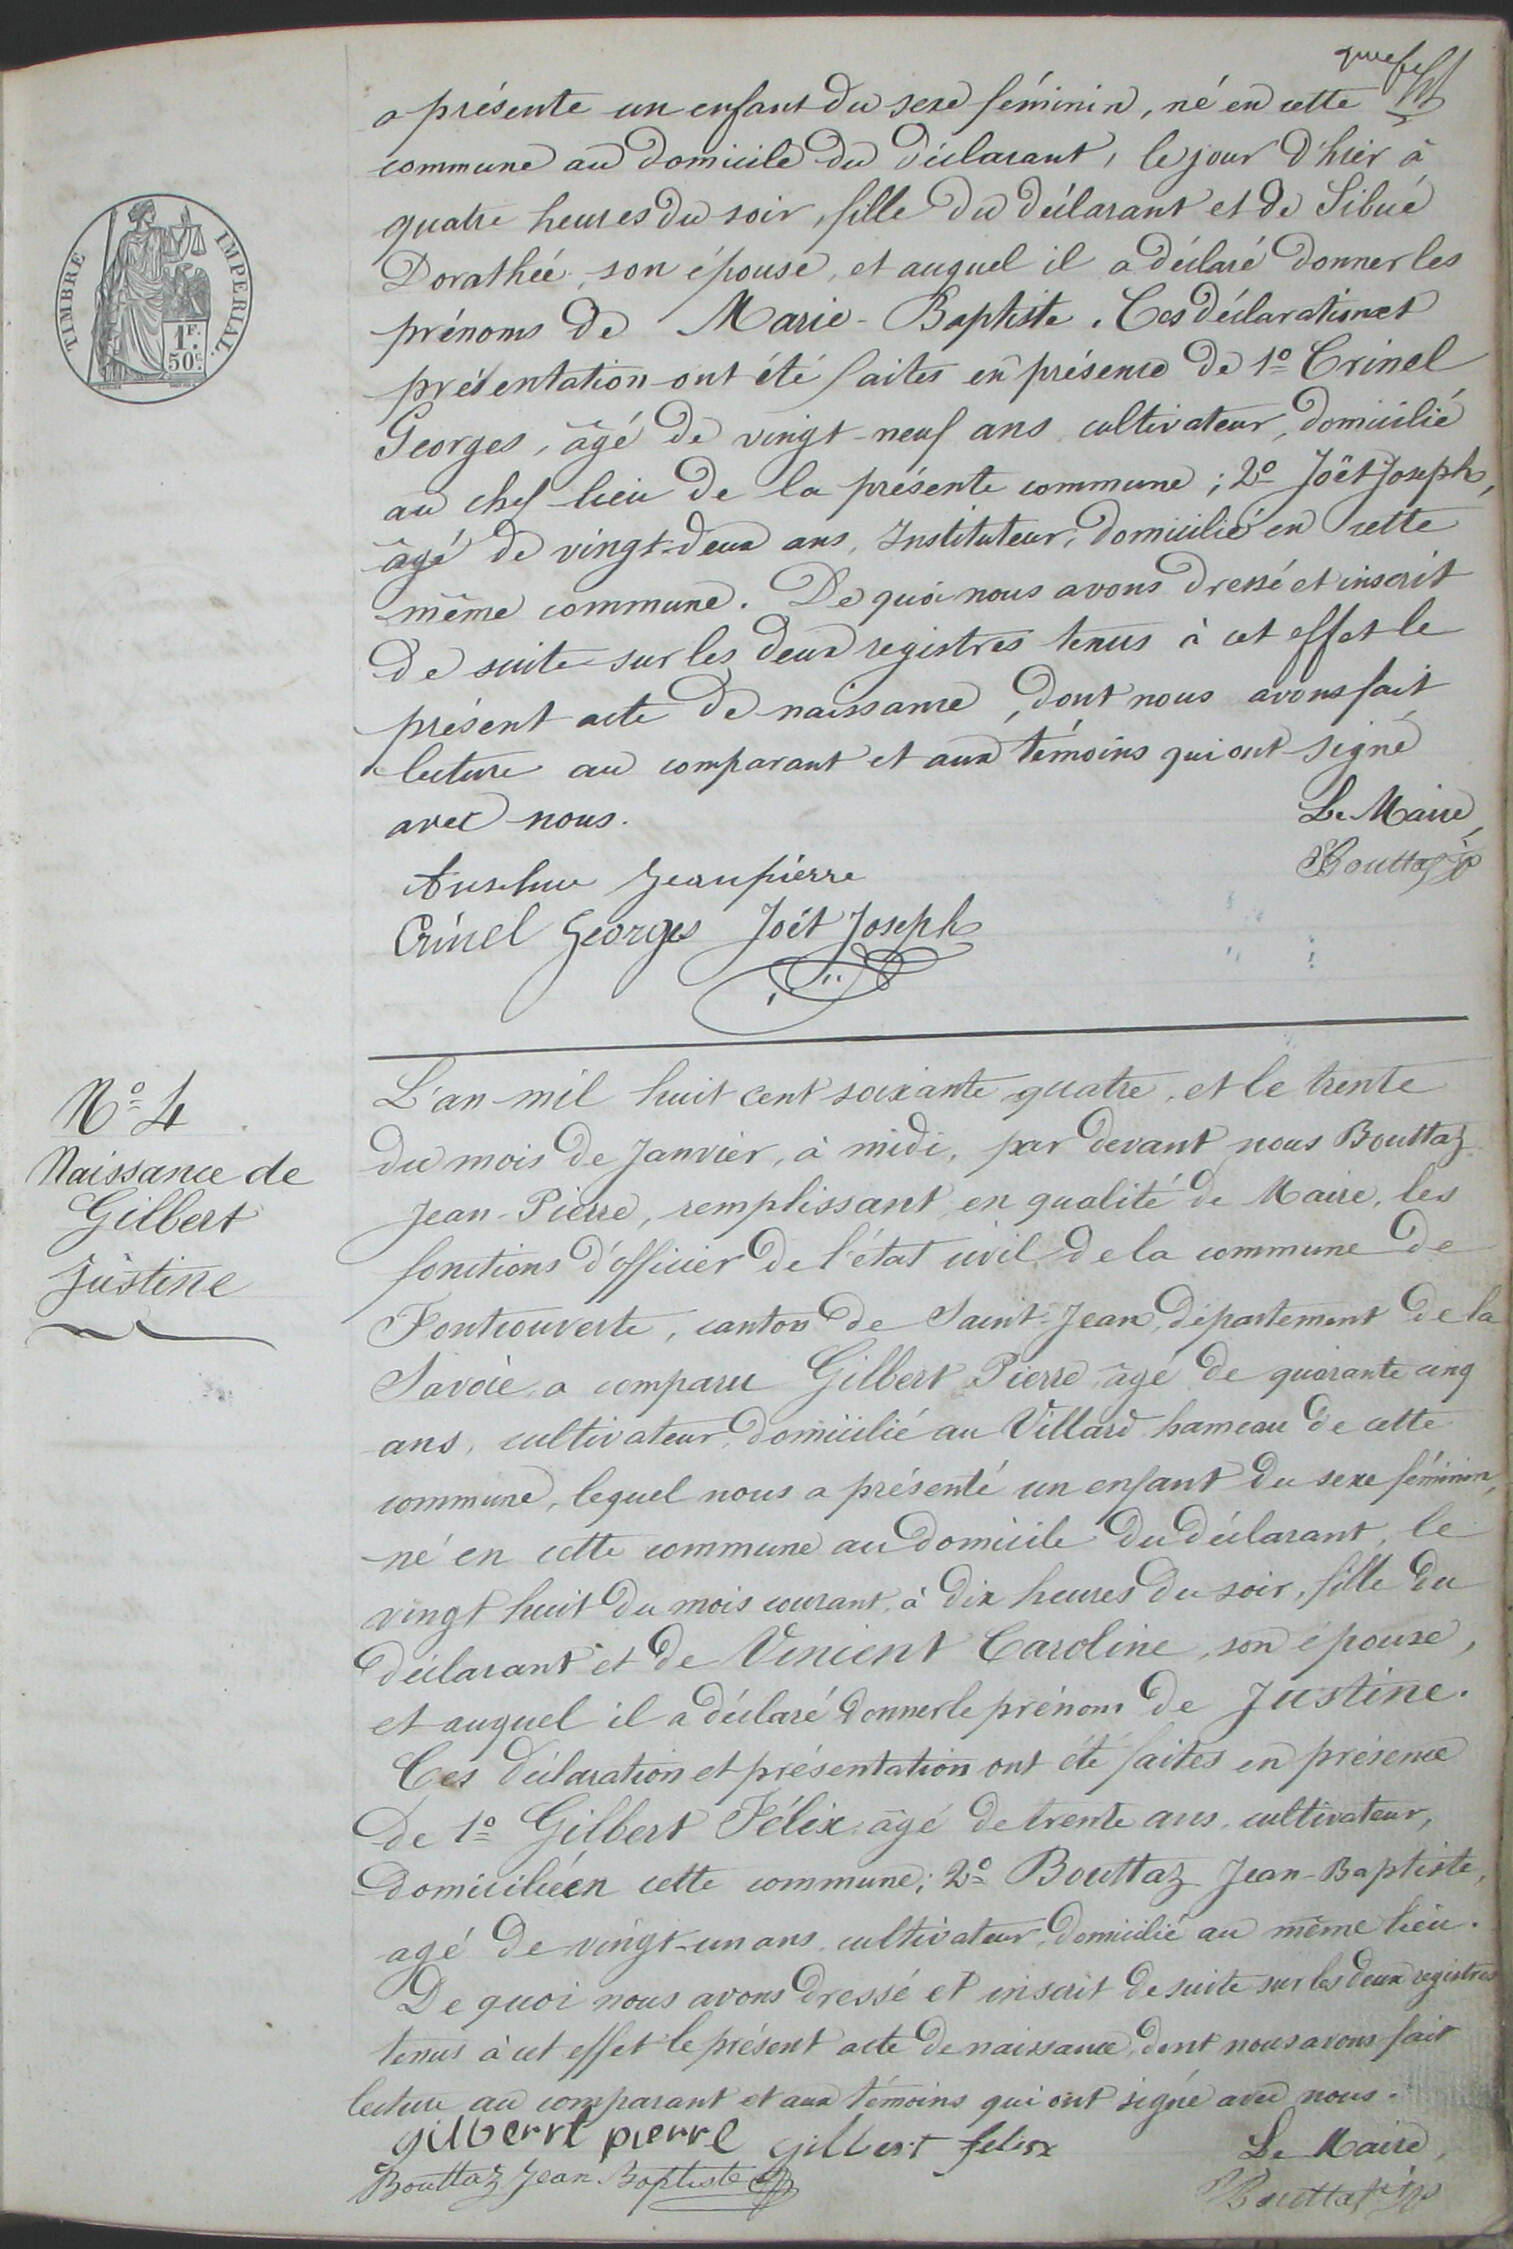 a présenté un enfant du sexe féminin, né en cette
commune au domicile du déclarant, le jour d'hier à
quatre heures du soir, fille du déclarant et de Sibué
Dorathée, son épouse, et auquel il a déclaré donner les
prénoms de Marie-Baptiste. Ces déclaration et
présentation ont été faites en présence de 1º Crinel
Georges, âgé de vingt-neuf ans, cultivateur, domicilié
au chef-lieu de la présente commune; 2º Joët Joseph,
âgé de vingt-deux ans, Instituteur, domicilié en cette
même commune. De quoi nous avons dressé et inscrit
de suite sur les deux registres tenus à cet effet le
présent acte de naissance, dont nous avons fait
lecture au comparant et aux témoins qui ont signé
avec nous.
Le Maire,
Bouttaz
Anselme Jeanpierre
Crinel Georges Joët Joseph
TIMBRE IMPERIAL.
1F.
50c.
Nº 4
Naissance de
Gilbert
Justine
L'an mil huit cent soixante quatre, et le trente
du mois de Janvier, à midi, par devant nous Bouttaz
Jean-Pierre, remplissant en qualité de Maire, les
fonctions d'officier de l'état civil de la commune de
Fontcouverte, canton de Saint-Jean, département de la
Savoie, a comparu Gilbert Pierre, âgé de quarante cinq
ans, cultivateur, domicilié au Villard hameau de cette
commune, lequel nous a présenté un enfant du sexe féminin,
né en cette commune au domicile du déclarant, le
vingt huit du mois courant, à dix heures du soir, fille du
déclarant et de Vincent Caroline, son épouse,
et auquel il a déclaré donner le prénom de Justine.
Ces déclaration et présentation ont été faites en présence
de 1º Gilbert Félix âgé de trente ans, cultivateur,
domicilié en cette commune; 2º Bouttaz Jean-Baptiste,
agé de vingt-un ans, cultivateur, domicilié au même lieu.
De quoi nous avons dressé et inscrit de suite sur les deux registres
tenus à cet effet le présent acte de naissance, dont nous avons fait
lecture au comparant et aux témoins qui ont signé avec nous.
gilbert pierre gilbert felix
Le Maire,
Bouttaz Jean-Baptiste
Bouttaz